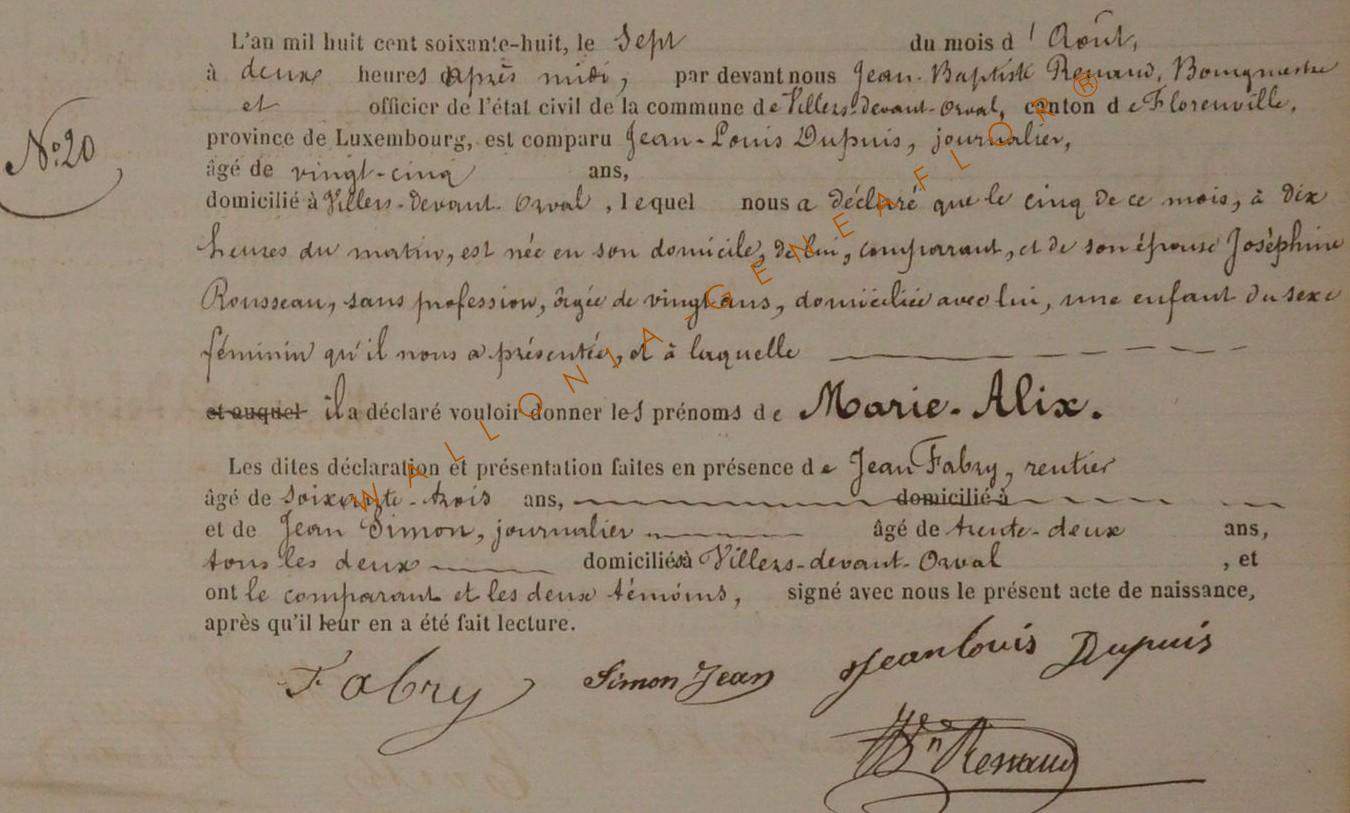 L'an mil huit cent soixante-huit, le Sept du mois d' Août,
à deux heures après midi, par devant nous Jean-Baptiste Renaud, Bourgmestre
et officier de l'état civil de la commune de Villers-devant-Orval, canton de Florenville,
N° 20
province de Luxembourg, est comparu Jean-Louis Dupuis, journalier,
âgé de vingt-cinq ans,
domicilié à Villers-devant-Orval, lequel nous a déclaré que le cinq de ce mois, à dix
heures du matin, est née en son domicile, de lui, comparant, et de son épouse Joséphine
Rousseau, sans profession, âgée de vingt ans, domiciliée avec lui, une enfant du sexe
féminin qu'il nous a présentée, et à laquelle
et auquel il a déclaré vouloir donner les prénoms de Marie-Alix.
Les dites déclaration et présentation faites en présence de Jean Fabry, rentier
âgé de soixante-trois ans, domicilié à
et de Jean Simon, journalier âgé de trente-deux ans,
tous les deux domiciliés à Villers-devant-Orval, et
ont le comparant et les deux témoins, signé avec nous le présent acte de naissance,
après qu'il leur en a été fait lecture.
Fabry Simon Jean Jean louis Dupuis
Renaud
WALLONIA-GENEAFLOR®